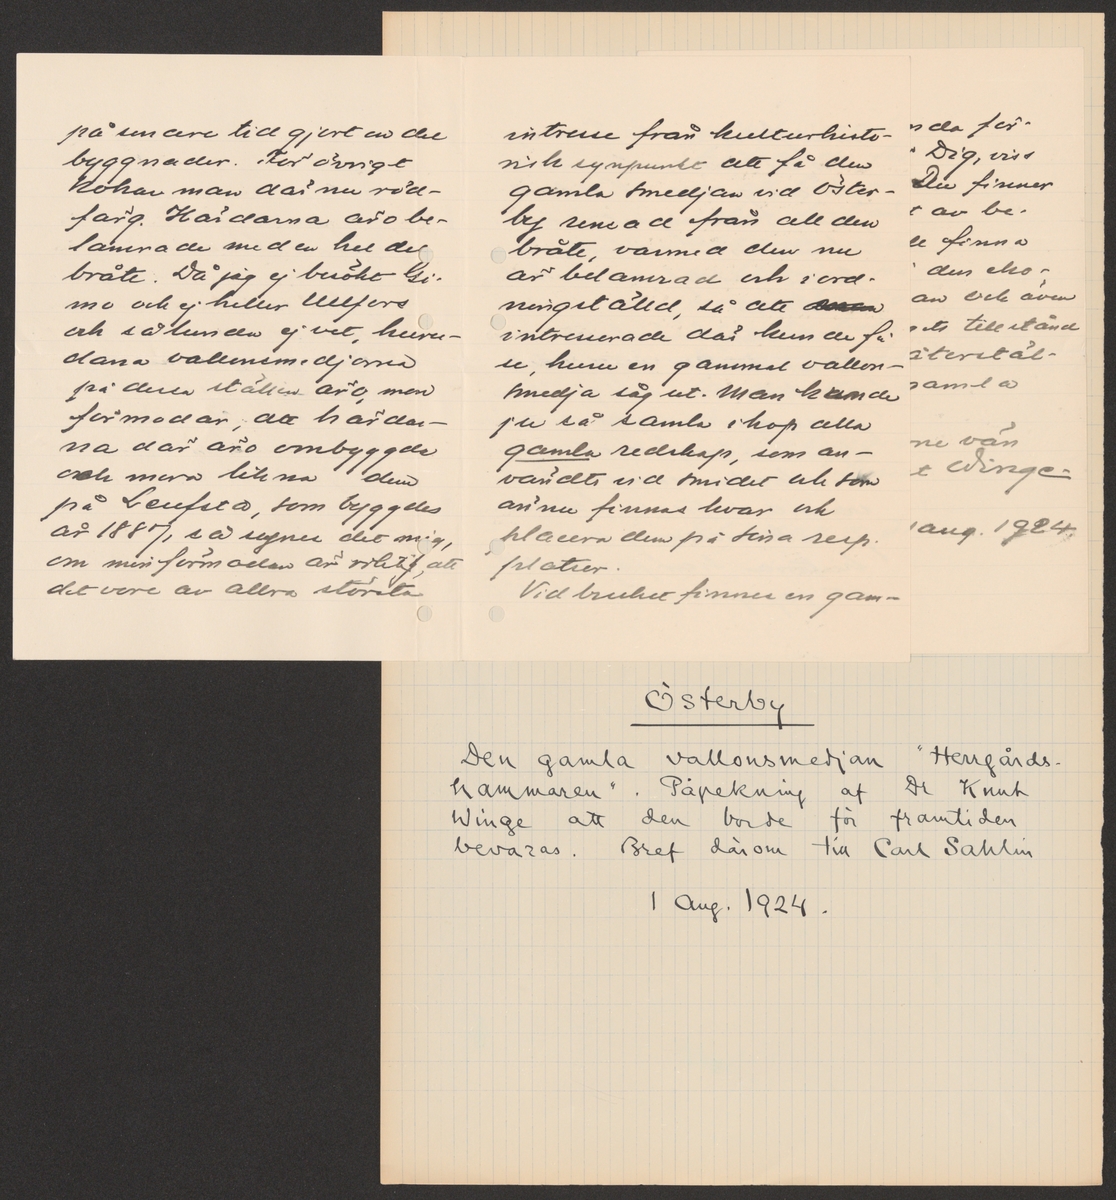 på senare tid gjort en del
byggnader. För övrigt
kokar man där nu röd-
färg. Härdarna äro be-
lamrade med en hel del
bråte. Då jag ej besökt Gi-
mo och ej heller Ullfors
och sålunda ej vet, huru-
dana vallonsmedjorna
på dessa ställen äro, men
förmodar, att härdar-
na där äro ombyggda
och mera likna dem
på Leufsta, som byggdes
år 1887, så synes det mig,
om min förmodan är riktig, att
det vore av allra största
intresse från kulturhisto-
risk synpunkt att få den
gamla smedjan vid Öster-
by rensad från all den
bråte, varmed den nu
är belamrad och i ord-
ningställd, så att
intresserade där kunde få
se, huru en gammal vallon-
smedja såg ut. Man kunde
ju så samla ihop alla
gamla redskap, som an-
vändts vid smidet och som
ännu finnas kvar och
placera dem på sina resp.
platser.
Vid bruket finnes en gam-
nda för-
Dig, viss
Du finner
t av be-
finna
den eko-
an och även
tillstånd
återstäl-
samla
ne vän
t Winge-
1 aug. 1924.
Österby
Den gamla vallonsmedjan "Herrgårds-
hammaren". Påpekning af Dr Knut
Winge att den borde för framtiden
bevaras. Bref därom till Carl Sahlin
1 Aug. 1924.